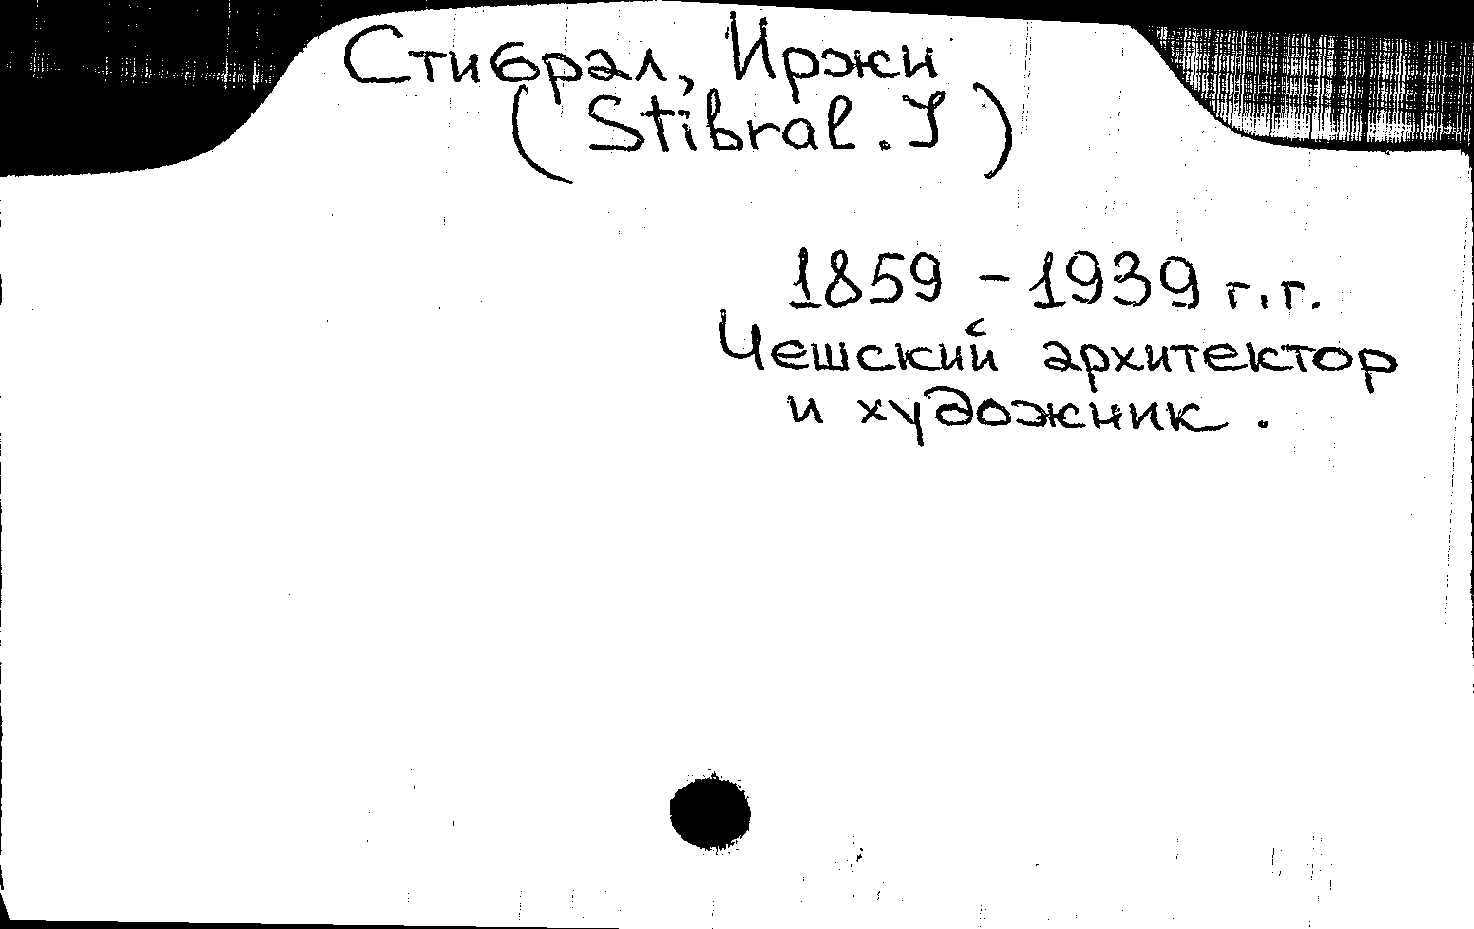 Стибрал, Иржи
(Stibral. J)
1859 - 1939 г.г.
Чешский архитектор
и художник.